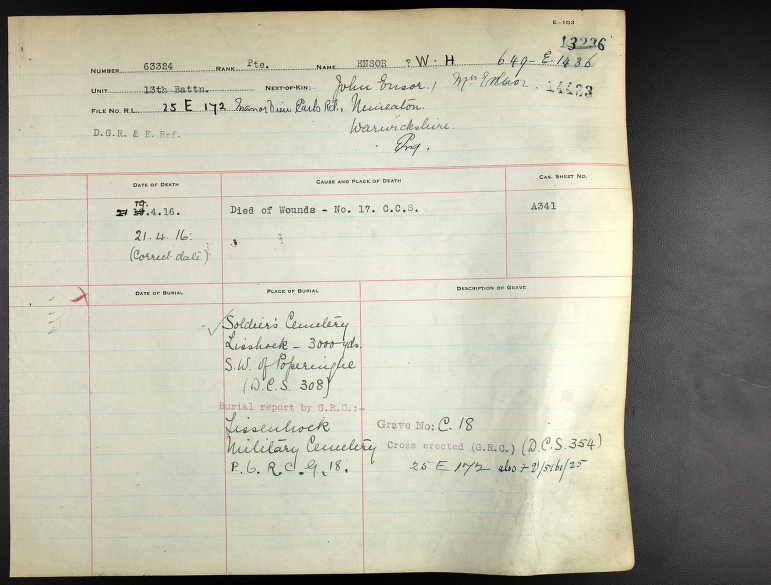 E-103
13236
NUMBER 63324 RANK Pte. NAME ENSOR ? W. H 649-E.1436
UNIT 13th Battn. NEXT-OF-KIN: John Ensor, Mrs Ensor 14423
FILE NO. R.L. 25 E 172 Manor Rd., Nuneaton.
D.G.R. & E. Ref. Warwickshire.
Eng.
DATE OF DEATH CAUSE AND PLACE OF DEATH CAS. SHEET NO.
19.
.4.16. Died of Wounds - No. 17. C.C.S. A341
21.4.16.
(Correct date)
DATE OF BURIAL PLACE OF BURIAL DESCRIPTION OF GRAVE
Soldier's Cemetery
Lisshoek - 3000 yds.
S.W. of Poperingue
(D.C.S. 308)
Burial report by G.R.C.:-
Lissenhoek Grave No: C. 18
Military Cemetery Cross erected (G.R.C.) (D.C.S. 354)
P. 6. R. C. G. 18. 25 E 172 also